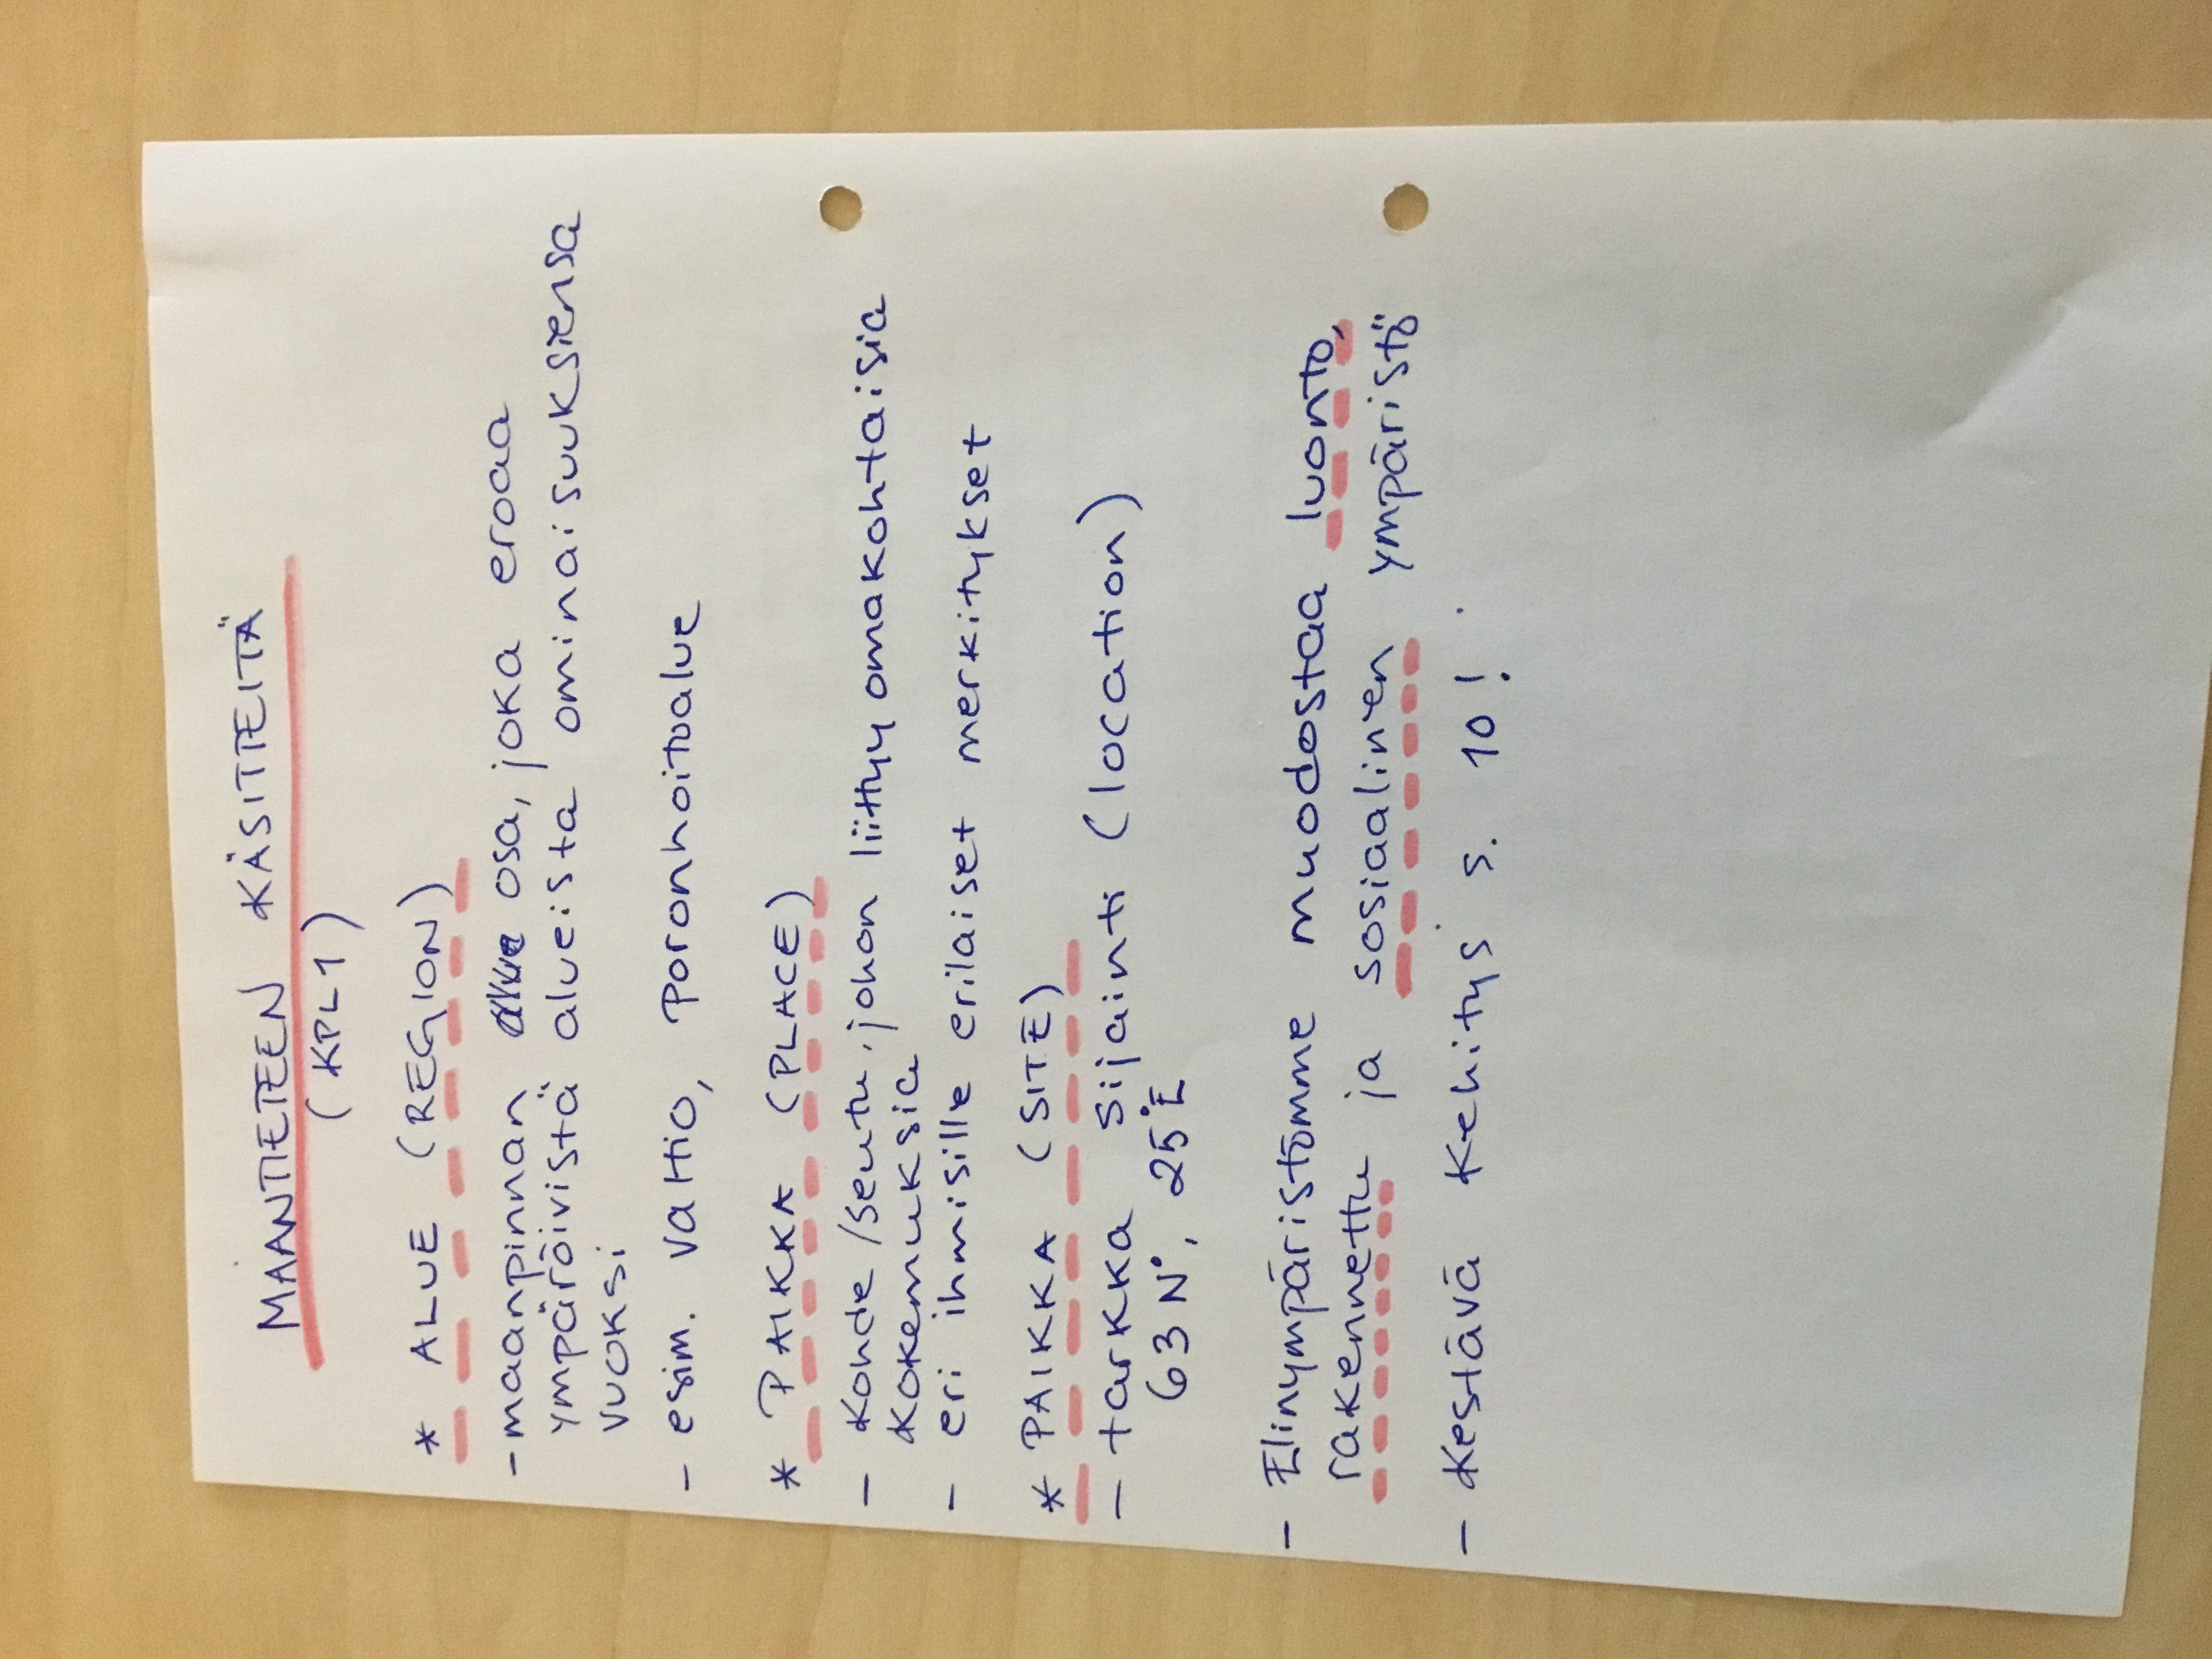 MAANTIETEEN KÄSITTEITÄ
(KPL 1)
* ALUE (REGION)
- maanpinnan osa, joka eroaa
ympäröivistä alueista ominaisuuksiensa
vuoksi
- esim. valtio, Poronhoitoalue
* PAIKKA (PLACE)
- Kohde/seutu, johon liittyy omakohtaisia
kokemuksia
- eri ihmisille erilaiset merkitykset
* PAIKKA (SITE)
- tarkka sijainti (location)
63 N°, 25°E
- Elinympäristömme muodostaa luonto,
rakennettu ja sosiaalinen ympäristö
- Kestävä kehitys s. 10!